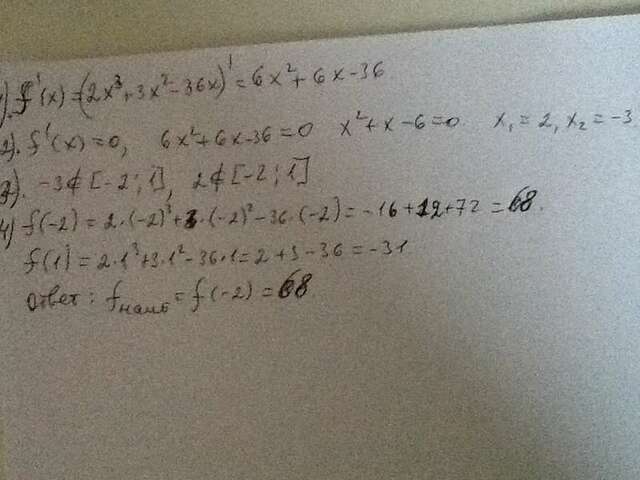 1). f'(x) = (2x³ + 3x² - 36x)' = 6x² + 6x - 36
2). f'(x) = 0, 6x² + 6x - 36 = 0 x² + x - 6 = 0 x₁ = 2, x₂ = -3
3). -3 ∉ [-2; 1], 2 ∉ [-2; 1]
4) f(-2) = 2·(-2)³ + 3·(-2)² - 36·(-2) = -16 + 12 + 72 = 68.
f(1) = 2·1³ + 3·1² - 36·1 = 2 + 3 - 36 = -31
Ответ: fнаиб = f(-2) = 68